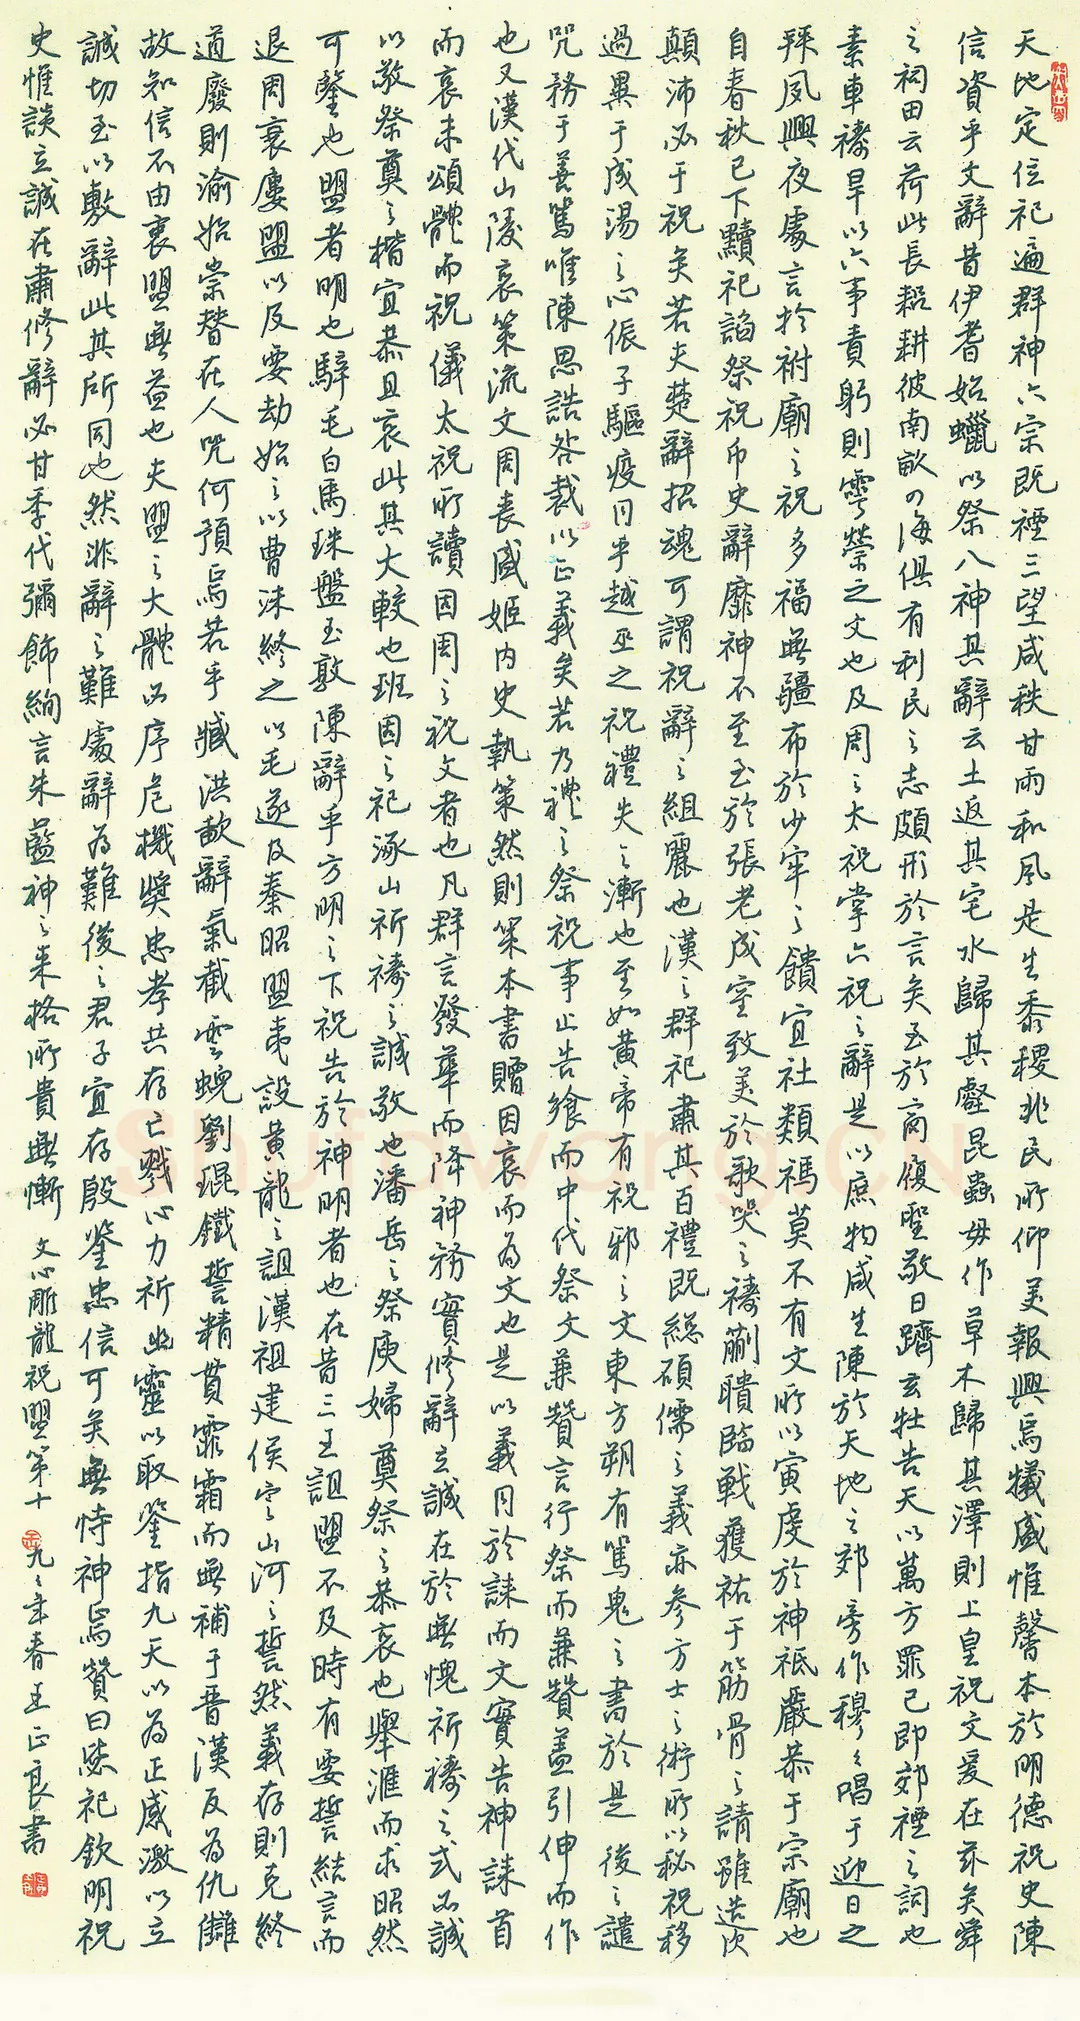 天地定位祀遍群神六宗既禋三望咸秩甘雨和風是生黍稷兆民所仰美報興焉犧盛惟馨本於明德祝史陳
信資乎文辭昔伊耆始蠟以祭八神其辭云土返其宅水歸其壑昆蟲毋作草木歸其澤則上皇祝文爰在茲矣舜
之祠田云荷此長耜耕彼南畝四海俱有利民之志頗形於言矣至於商履聖敬日躋玄牡告天以萬方罪己即郊禋之詞也
素車禱旱以六事責躬則雩禜之文也及周之太祝掌六祝之辭是以庶物咸生陳於天地之郊旁作穆々唱于迎日之
拜夙興夜處言於祔廟之祝多福無疆布於少牢之饋宜社類禡莫不有文所以寅虔於神祇嚴恭于宗廟也
自春秋已下黷祀諂祭祝帀史辭靡神不至至於張老成室致美於歌哭之禱蒯聵臨戰獲祐于筋骨之請雖造次
顛沛必于祝矣若夫楚辭招魂可謂祝辭之組麗也漢之群祀肅其百禮既總碩儒之義亦參方士之術所以秘祝移
過異于成湯之心侲子驅疫同乎越巫之祝禮失之漸也至如黃帝有祝邪之文東方朔有罵鬼之書於是後之譴
咒務于善罵唯陳思誥咎裁以正義矣若乃禮之祭祝事止告飨而中代祭文兼贊言行祭而兼贊蓋引伸而作
也又漢代山陵哀策流文周喪盛姬內史執策然則策本書贈因哀而為文也是以義同於誄而文實告神誄首
而哀末頌體而祝儀太祝所讀因周之祝文者也凡群言發華而降神務實修辭立誠在於無愧祈禱之式必誠
以敬祭奠之楷宜恭且哀此其大較也班固之祀涿山祈禱之誠敬也潘岳之祭庾婦奠祭之恭哀也舉滙而求昭然
可鑒也盟者明也騂毛白馬珠盤玉敦陳辭乎方明之下祝告於神明者也在昔三王詛盟不及時有要誓結言而
退周衰屢盟以及要劫始之以曹沫終之以毛遂及秦昭盟夷設黃龍之詛漢祖建侯定山河之誓然義存則克終
道廢則渝始崇替在人咒何預焉若乎臧洪歃辭氣截雲蜺劉琨鐵誓精貫霏霜而無補于晉漢反為仇讎
故知信不由衷盟無益也夫盟之大體必序危機獎忠孝共存亡戮心力祈幽靈以取鑒指九天以為正感激以立
誠切至以敷辭此其所同也然非辭之難處辭為難後之君子宜存殷鑒忠信可矣無恃神焉贊曰毖祀欽明祝
史惟談立誠在肅修辭必甘季代彌飾絢言朱藍神之來格所貴無慚 文心雕龍祝盟第十 九九年春王正良書
Shufawang.CN